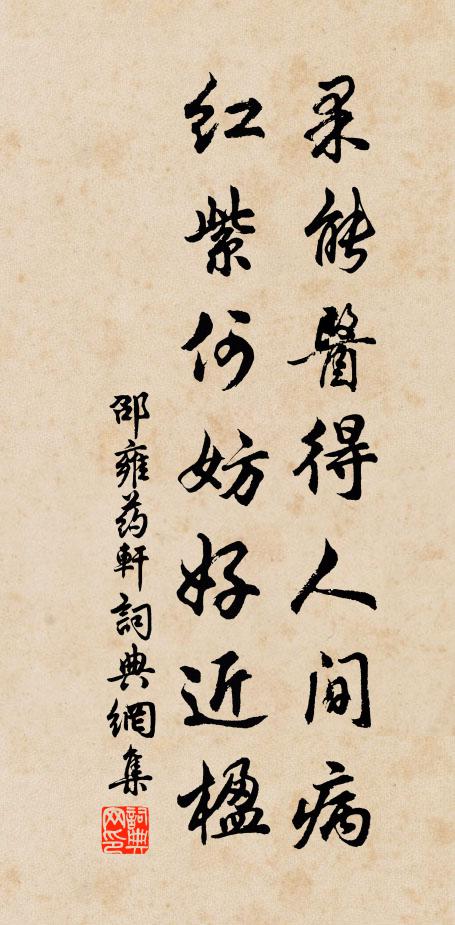 果能醫得人間病
紅紫何妨好近楹
邵雍药軒詞典網集
詞典网印